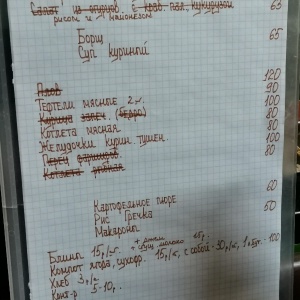 Салат из огурцов, с краб. пал., кукурузой 65
рисом и майонезом
Борщ 65
Суп куриный
Плов 120
Тефтели мясные 2 шт. 90
Курица запеч. (бедро) 100
Котлета мясная 80
Желудочки курин. тушен. 80
Перец фарширов. 100
Котлета рыбная 80
Картофельное пюре 60
Рис Гречка 50
Макароны
Блины 15р/шт. + сгущ. молоко 15р.
Компот ягода, сухофр. 15р/к, с собой - 30р/к, 1 бут. - 100
Хлеб 3р/
5-10р.